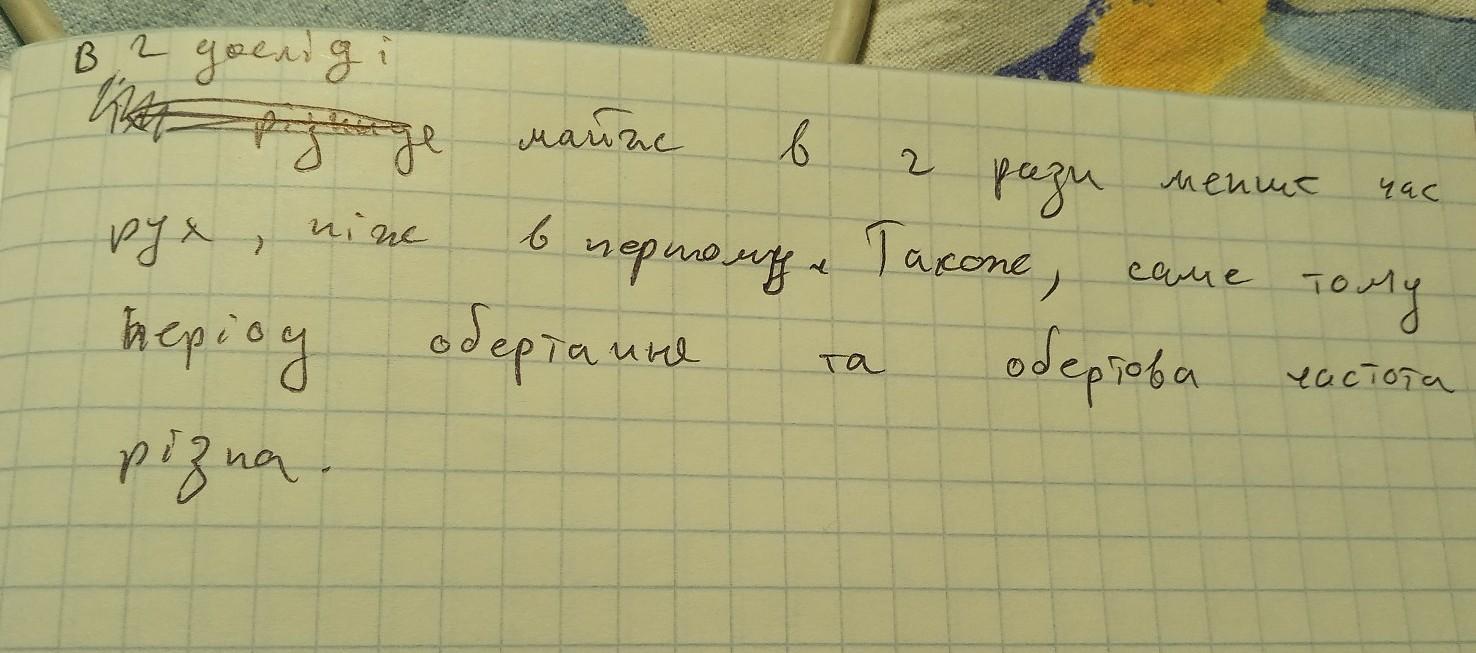 В 2 досліді
де майже в 2 рази менше час
рух, ніж в першому. Також, саме тому
період обертання та обертова частота
різна.